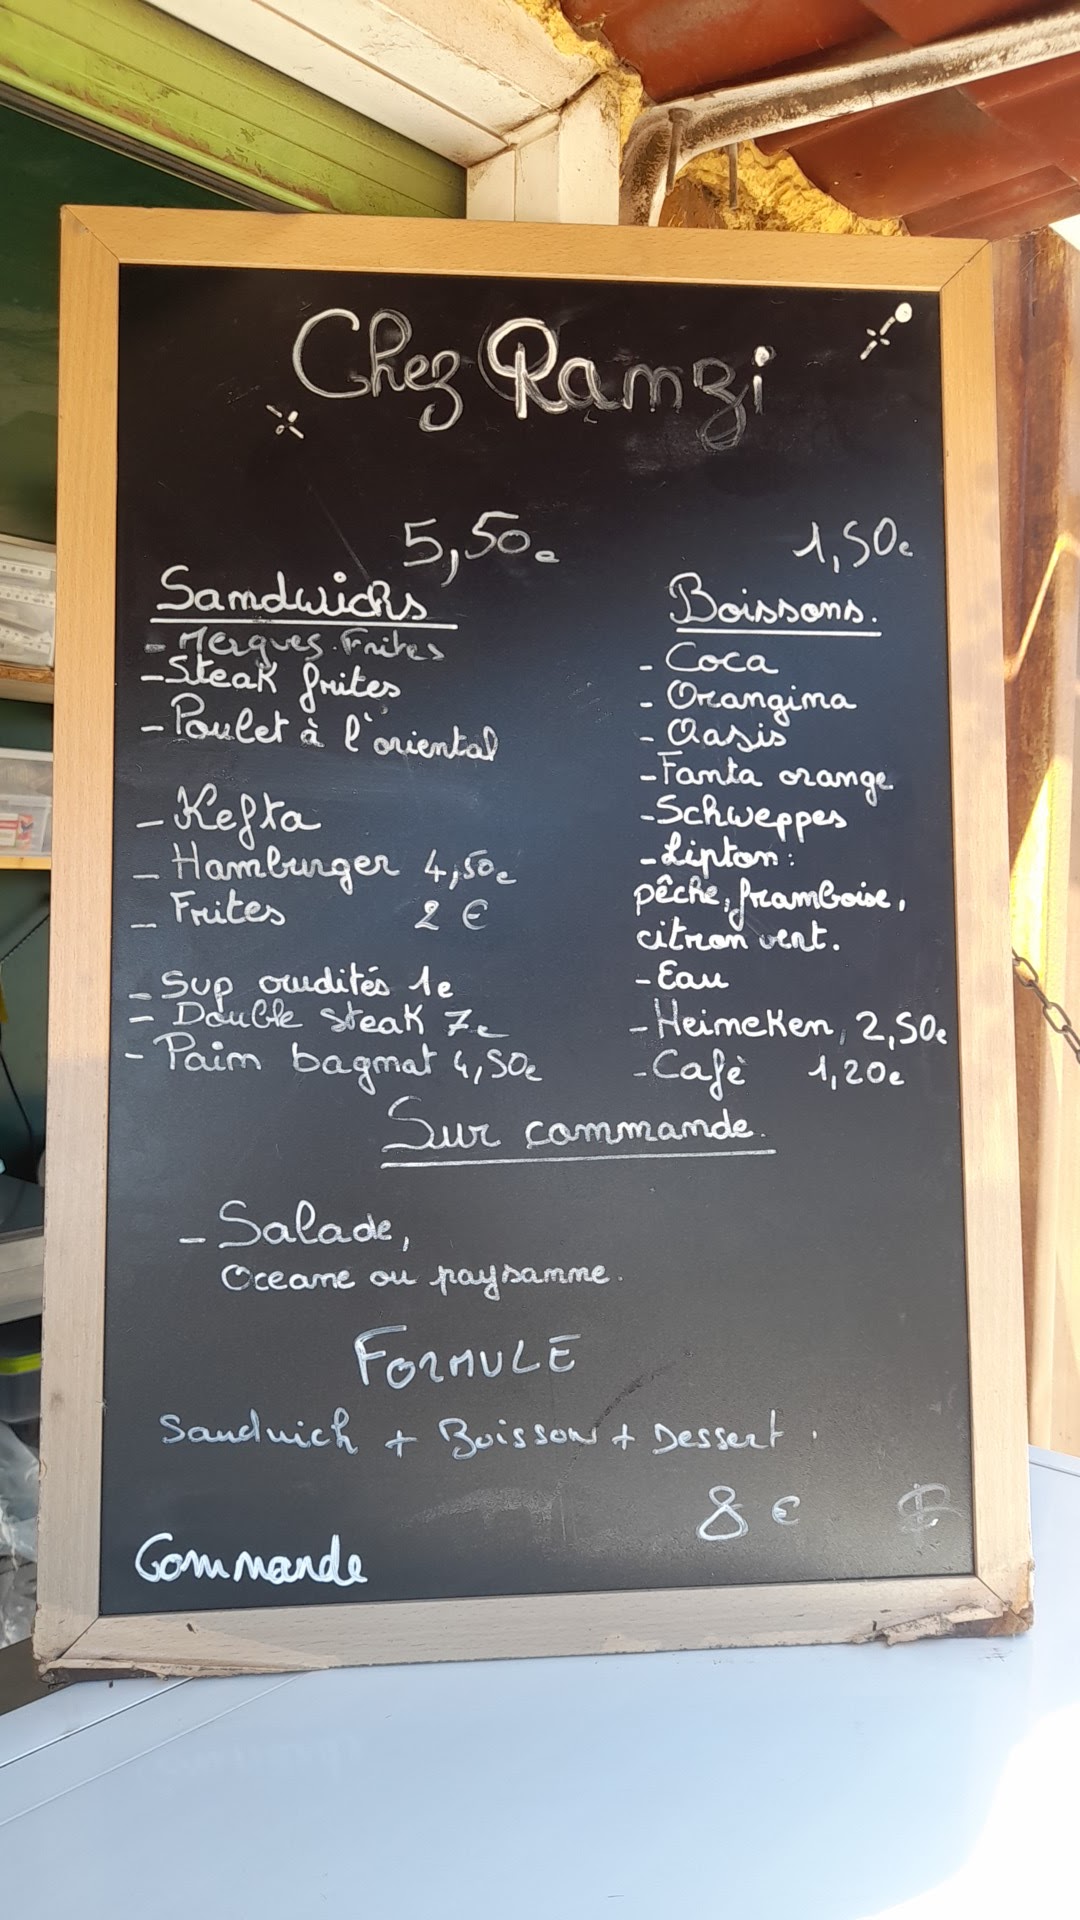 Chez Ramzi
5,50e
Sandwichs
- Merques. Frites
- Steak frites
- Poulet à l'oriental
- Kefta
- Hamburger 4,50e
- Frites 2 €
- Sup crudités 1e
- Double steak 7e
- Pain bagnat 4,50e
1,50e
Boissons.
- Coca
- Orangina
- Oasis
- Fanta orange
- Schweppes
- Lipton:
pêche, framboise,
citron vert.
- Eau
- Heineken, 2,50e
- Cafè 1,20e
Sur commande.
- Salade,
Oceane ou paysanne.
FORMULE
Sandwich + Boisson + Dessert.
8 €
Commande